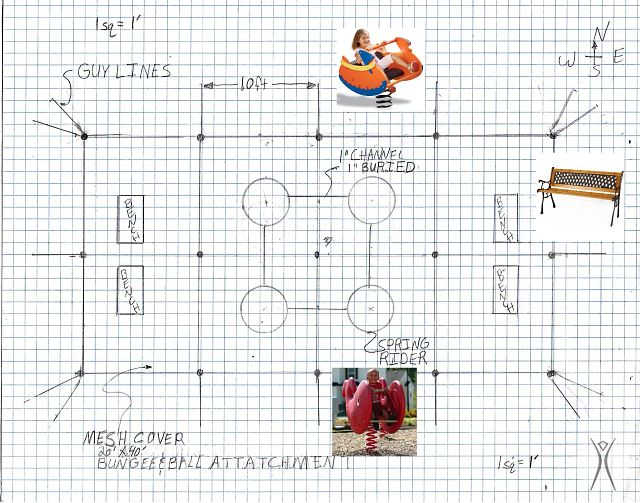 1sq = 1'
N
W E
S
GUY LINES
10ft
1" CHANNEL
1" BURIED
BENCH
BENCH
BENCH
BENCH
SPRING
RIDER
MESH COVER
20' X 40'
BUNGEE & BALL ATTATCHMENT
1sq = 1'